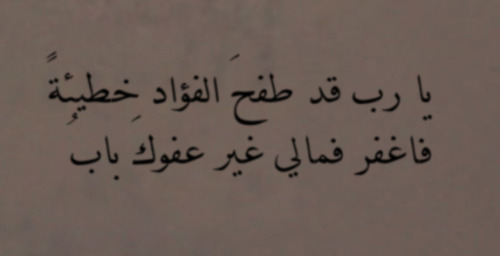 يا رب قد طفحَ الفؤاد خطيئةً
فاغفر فمالي غير عفوكَ بابُ